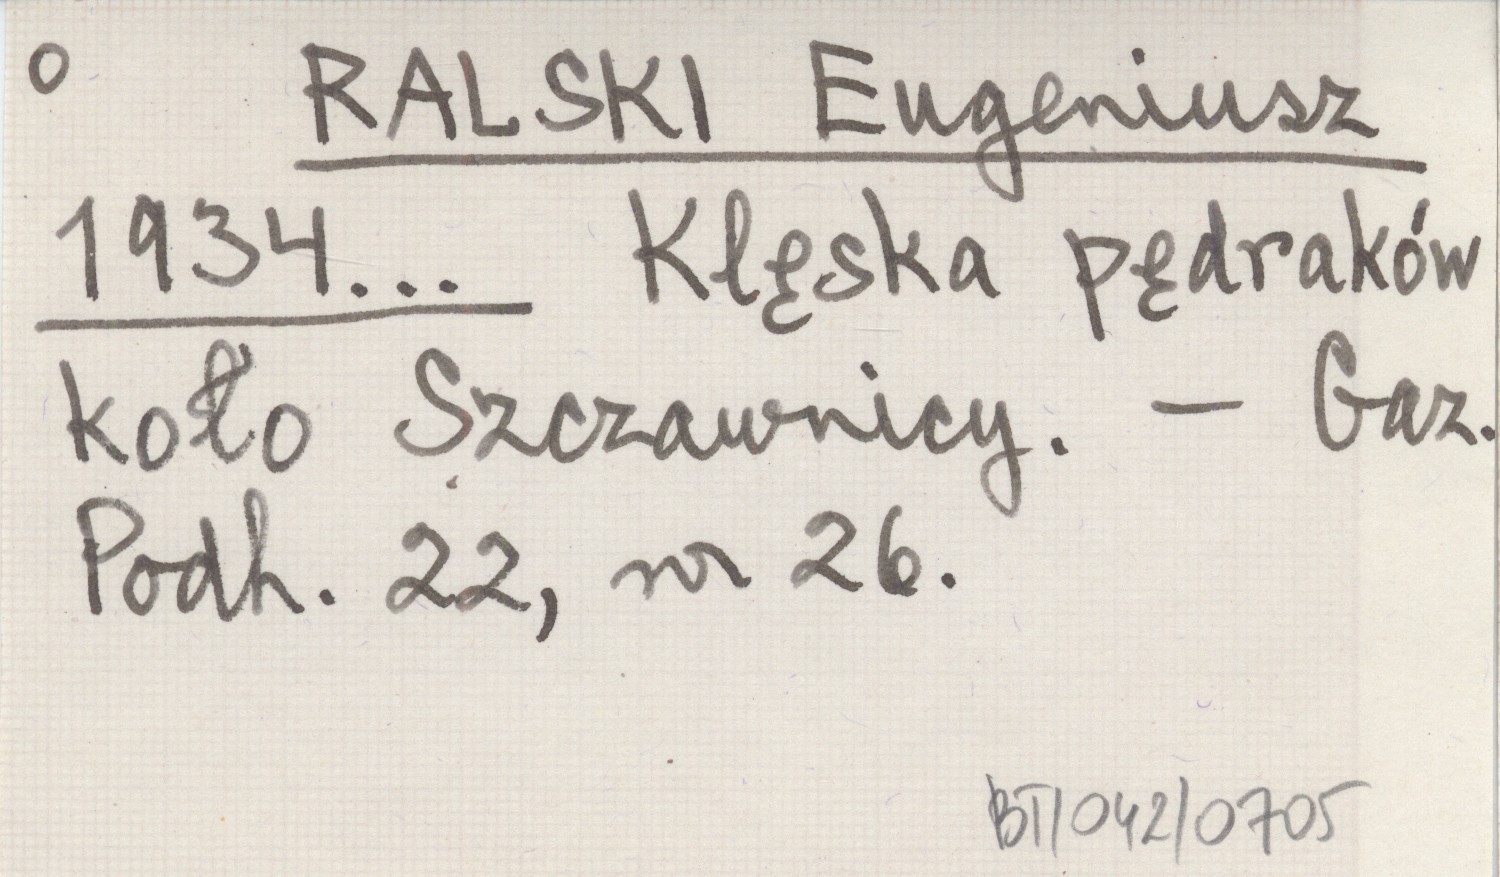 o RALSKI Eugeniusz
1934... Klęska pędraków
koło Szczawnicy. — Gaz.
Podh. 22, nr 26.
BT/042/0705